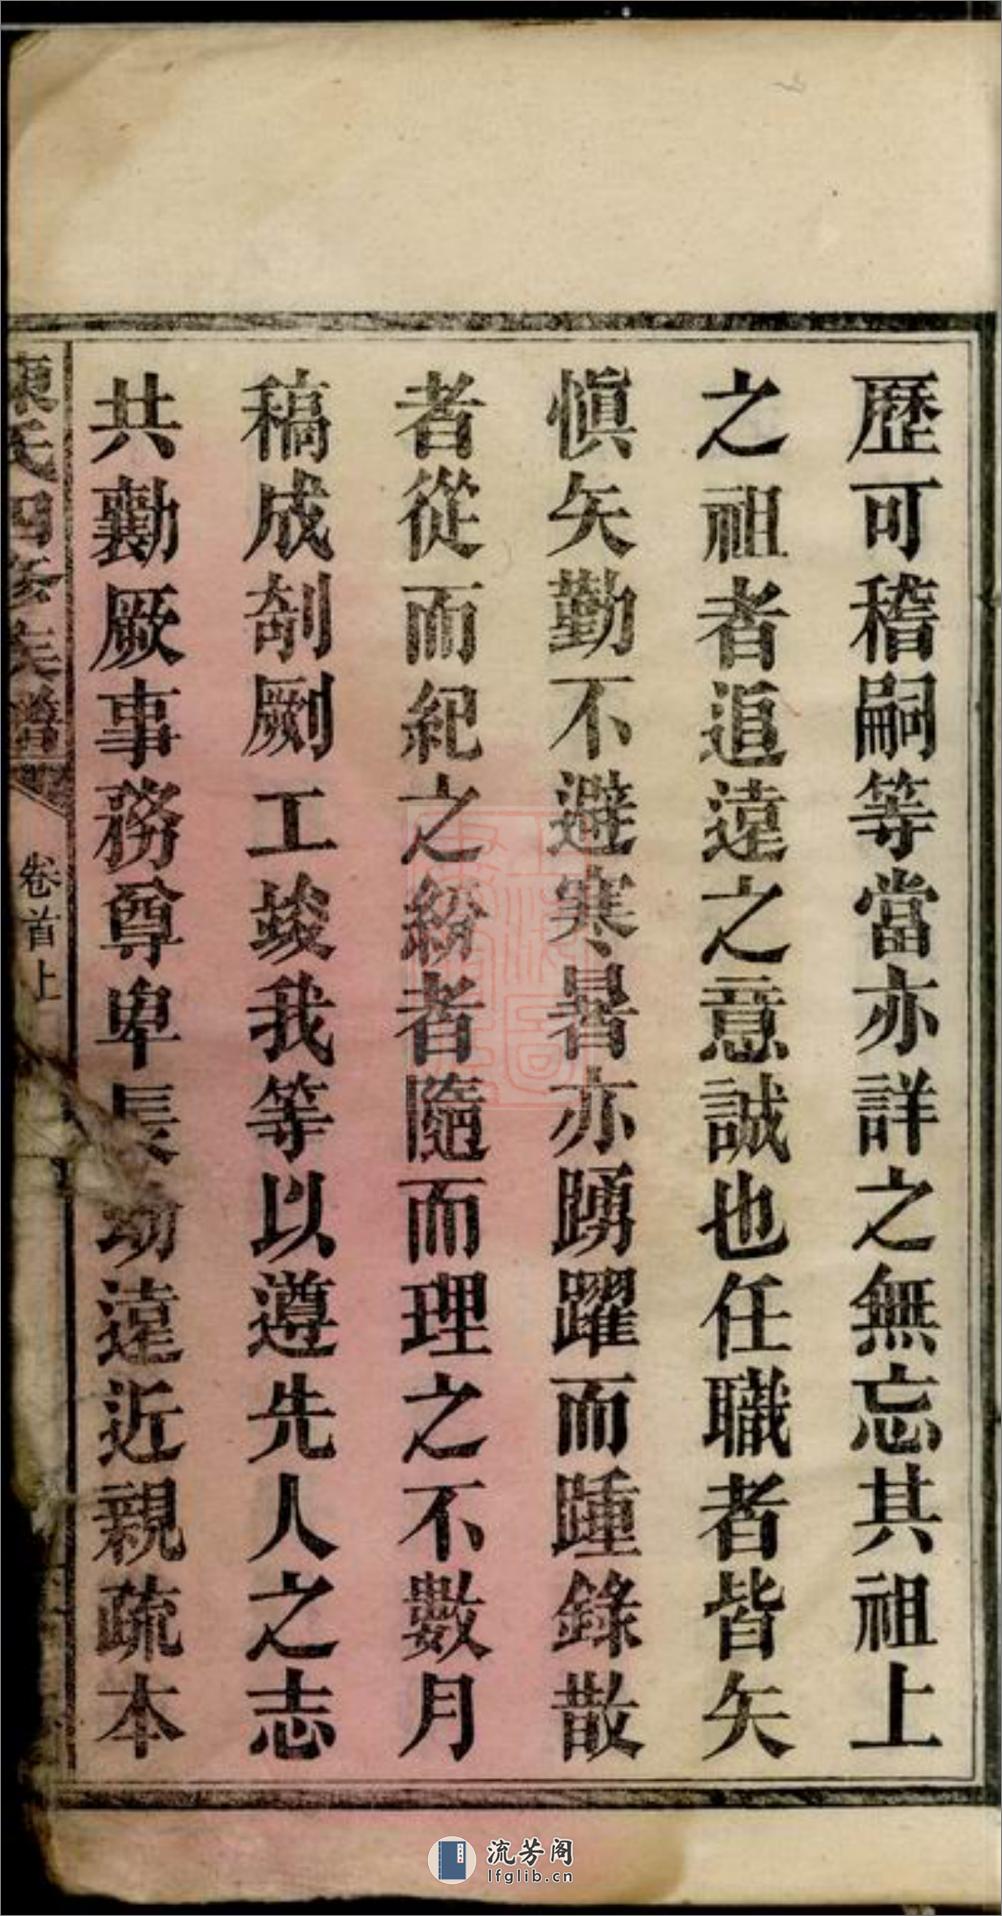 歷可稽嗣等當亦詳之無忘其祖上
之祖者追遠之意誠也任職者皆矢
慎矢勤不避寒暑亦踴躍而踵錄散
者從而紀之紛者隨而理之不數月
稿成剞劂工竣我等以遵先人之志
共勷厥事務尊卑長幼遠近親疏本
陳氏四修族譜
卷首上
流芳阁
lfglib.cn